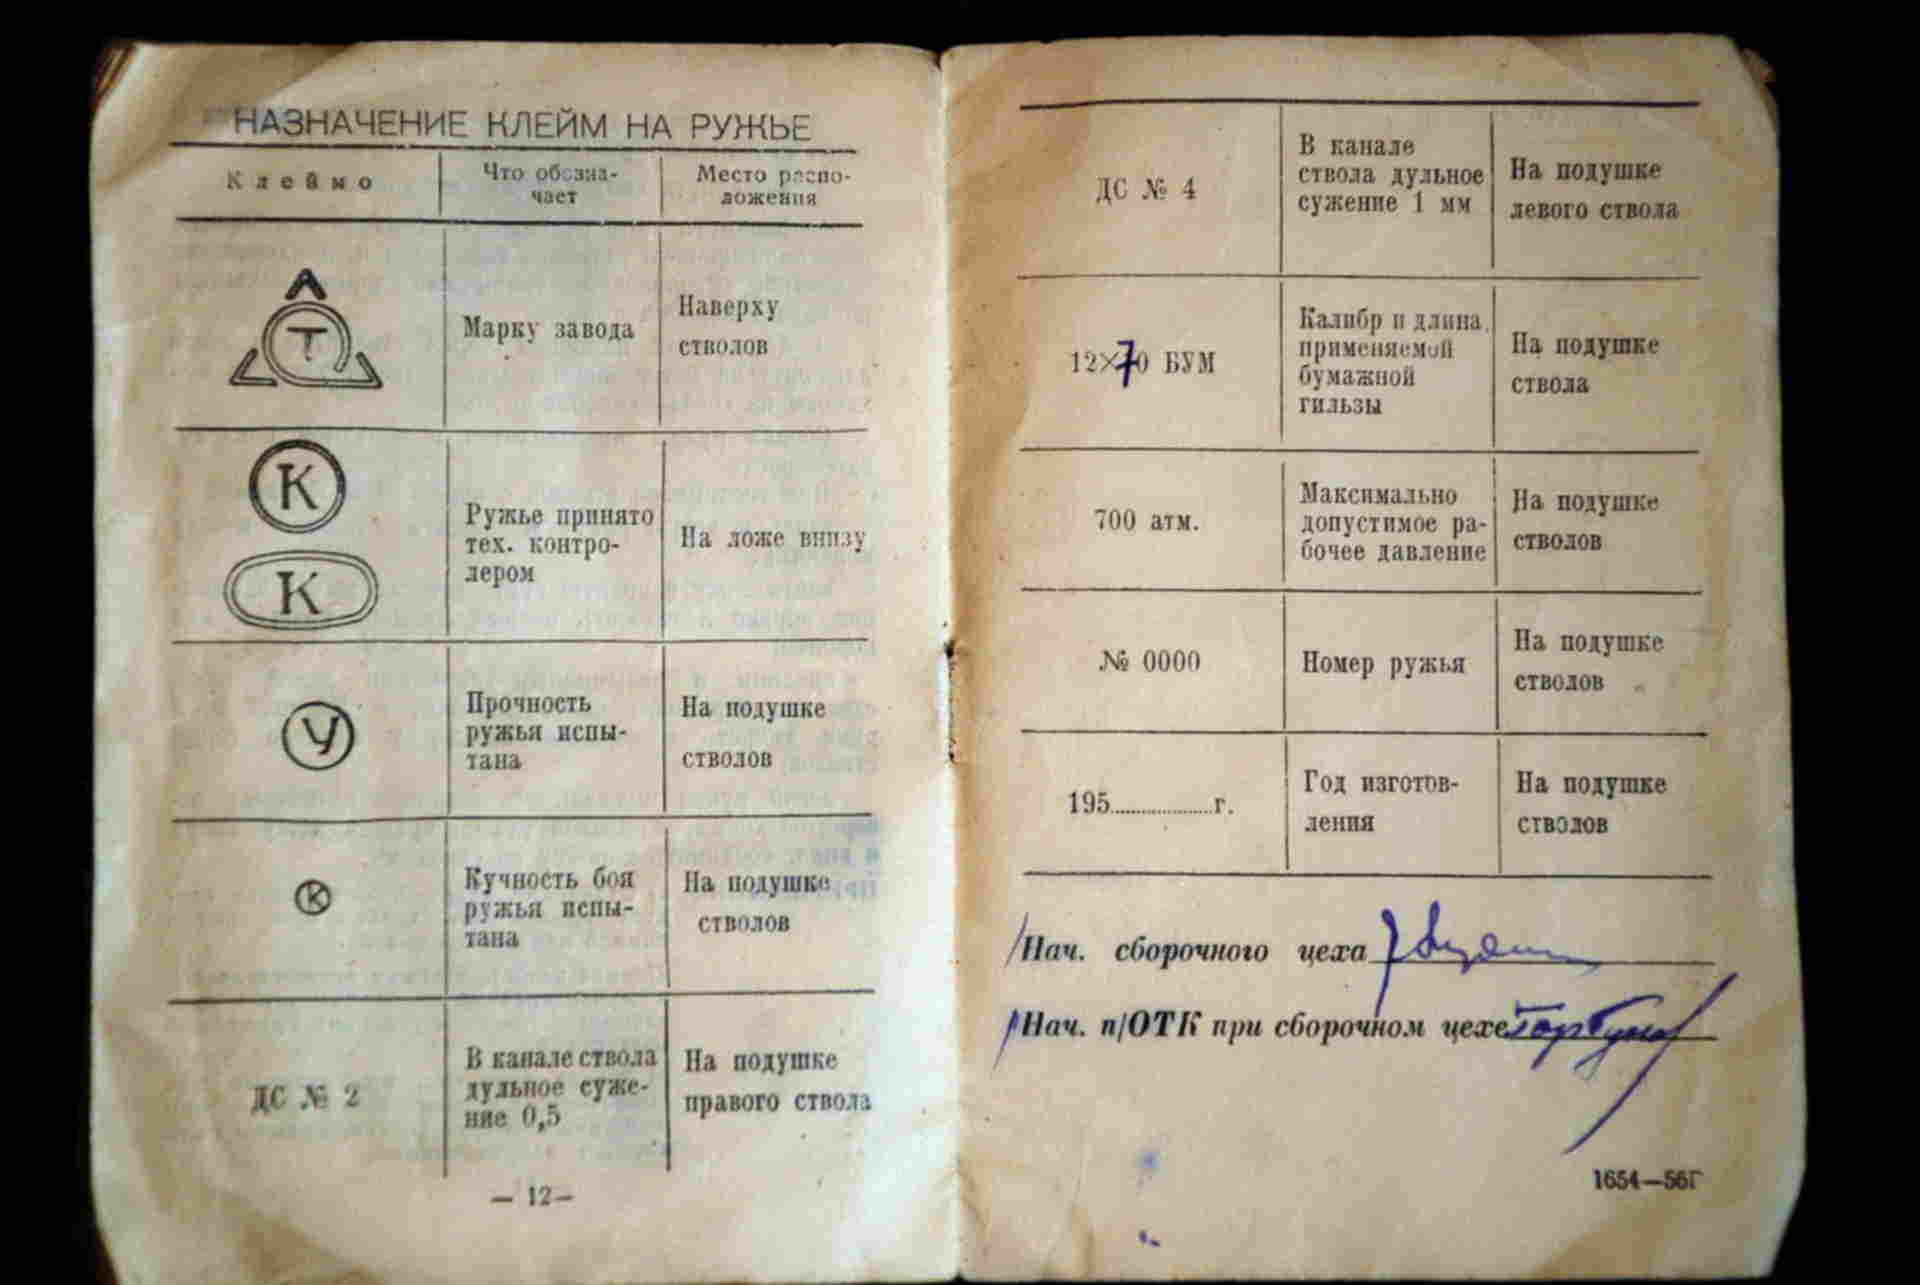 НАЗНАЧЕНИЕ КЛЕЙМ НА РУЖЬЕ
Клеймо
Что обозна-
чает
Место распо-
ложения
Т
Марку завода
Наверху
стволов
К
К
Ружье принято
тех. контро-
лером
На ложе внизу
У
Прочность
ружья испы-
тана
На подушке
стволов
К
Кучность боя
ружья испы-
тана
На подушке
стволов
ДС № 2
В канале ствола
дульное суже-
ние 0,5
На подушке
правого ствола
— 12—
ДС № 4
В канале
ствола дульное
сужение 1 мм
На подушке
левого ствола
12×70 БУМ
Калибр и длина
применяемой
бумажной
гильзы
На подушке
ствола
700 атм.
Максимально
допустимое ра-
бочее давление
На подушке
стволов
№ 0000
Номер ружья
На подушке
стволов
195....................г.
Год изготов-
ления
На подушке
стволов
Нач. сборочного цеха
Нач. п/ОТК при сборочном цехе Горбунов
1654—56Г